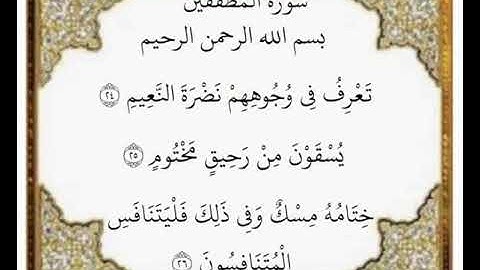 سورة المطففين
بسم الله الرحمن الرحيم
تَعْرِفُ فِى وُجُوهِهِمْ نَضْرَةَ النَّعِيمِ ٢٤
يُسْقَوْنَ مِنْ رَحِيقٍ مَخْتُومٍ ٢٥
خِتَامُهُ مِسْكٌ وَفِى ذَلِكَ فَلْيَتَنَافَسِ
الْمُتَنَافِسُونَ ٢٦